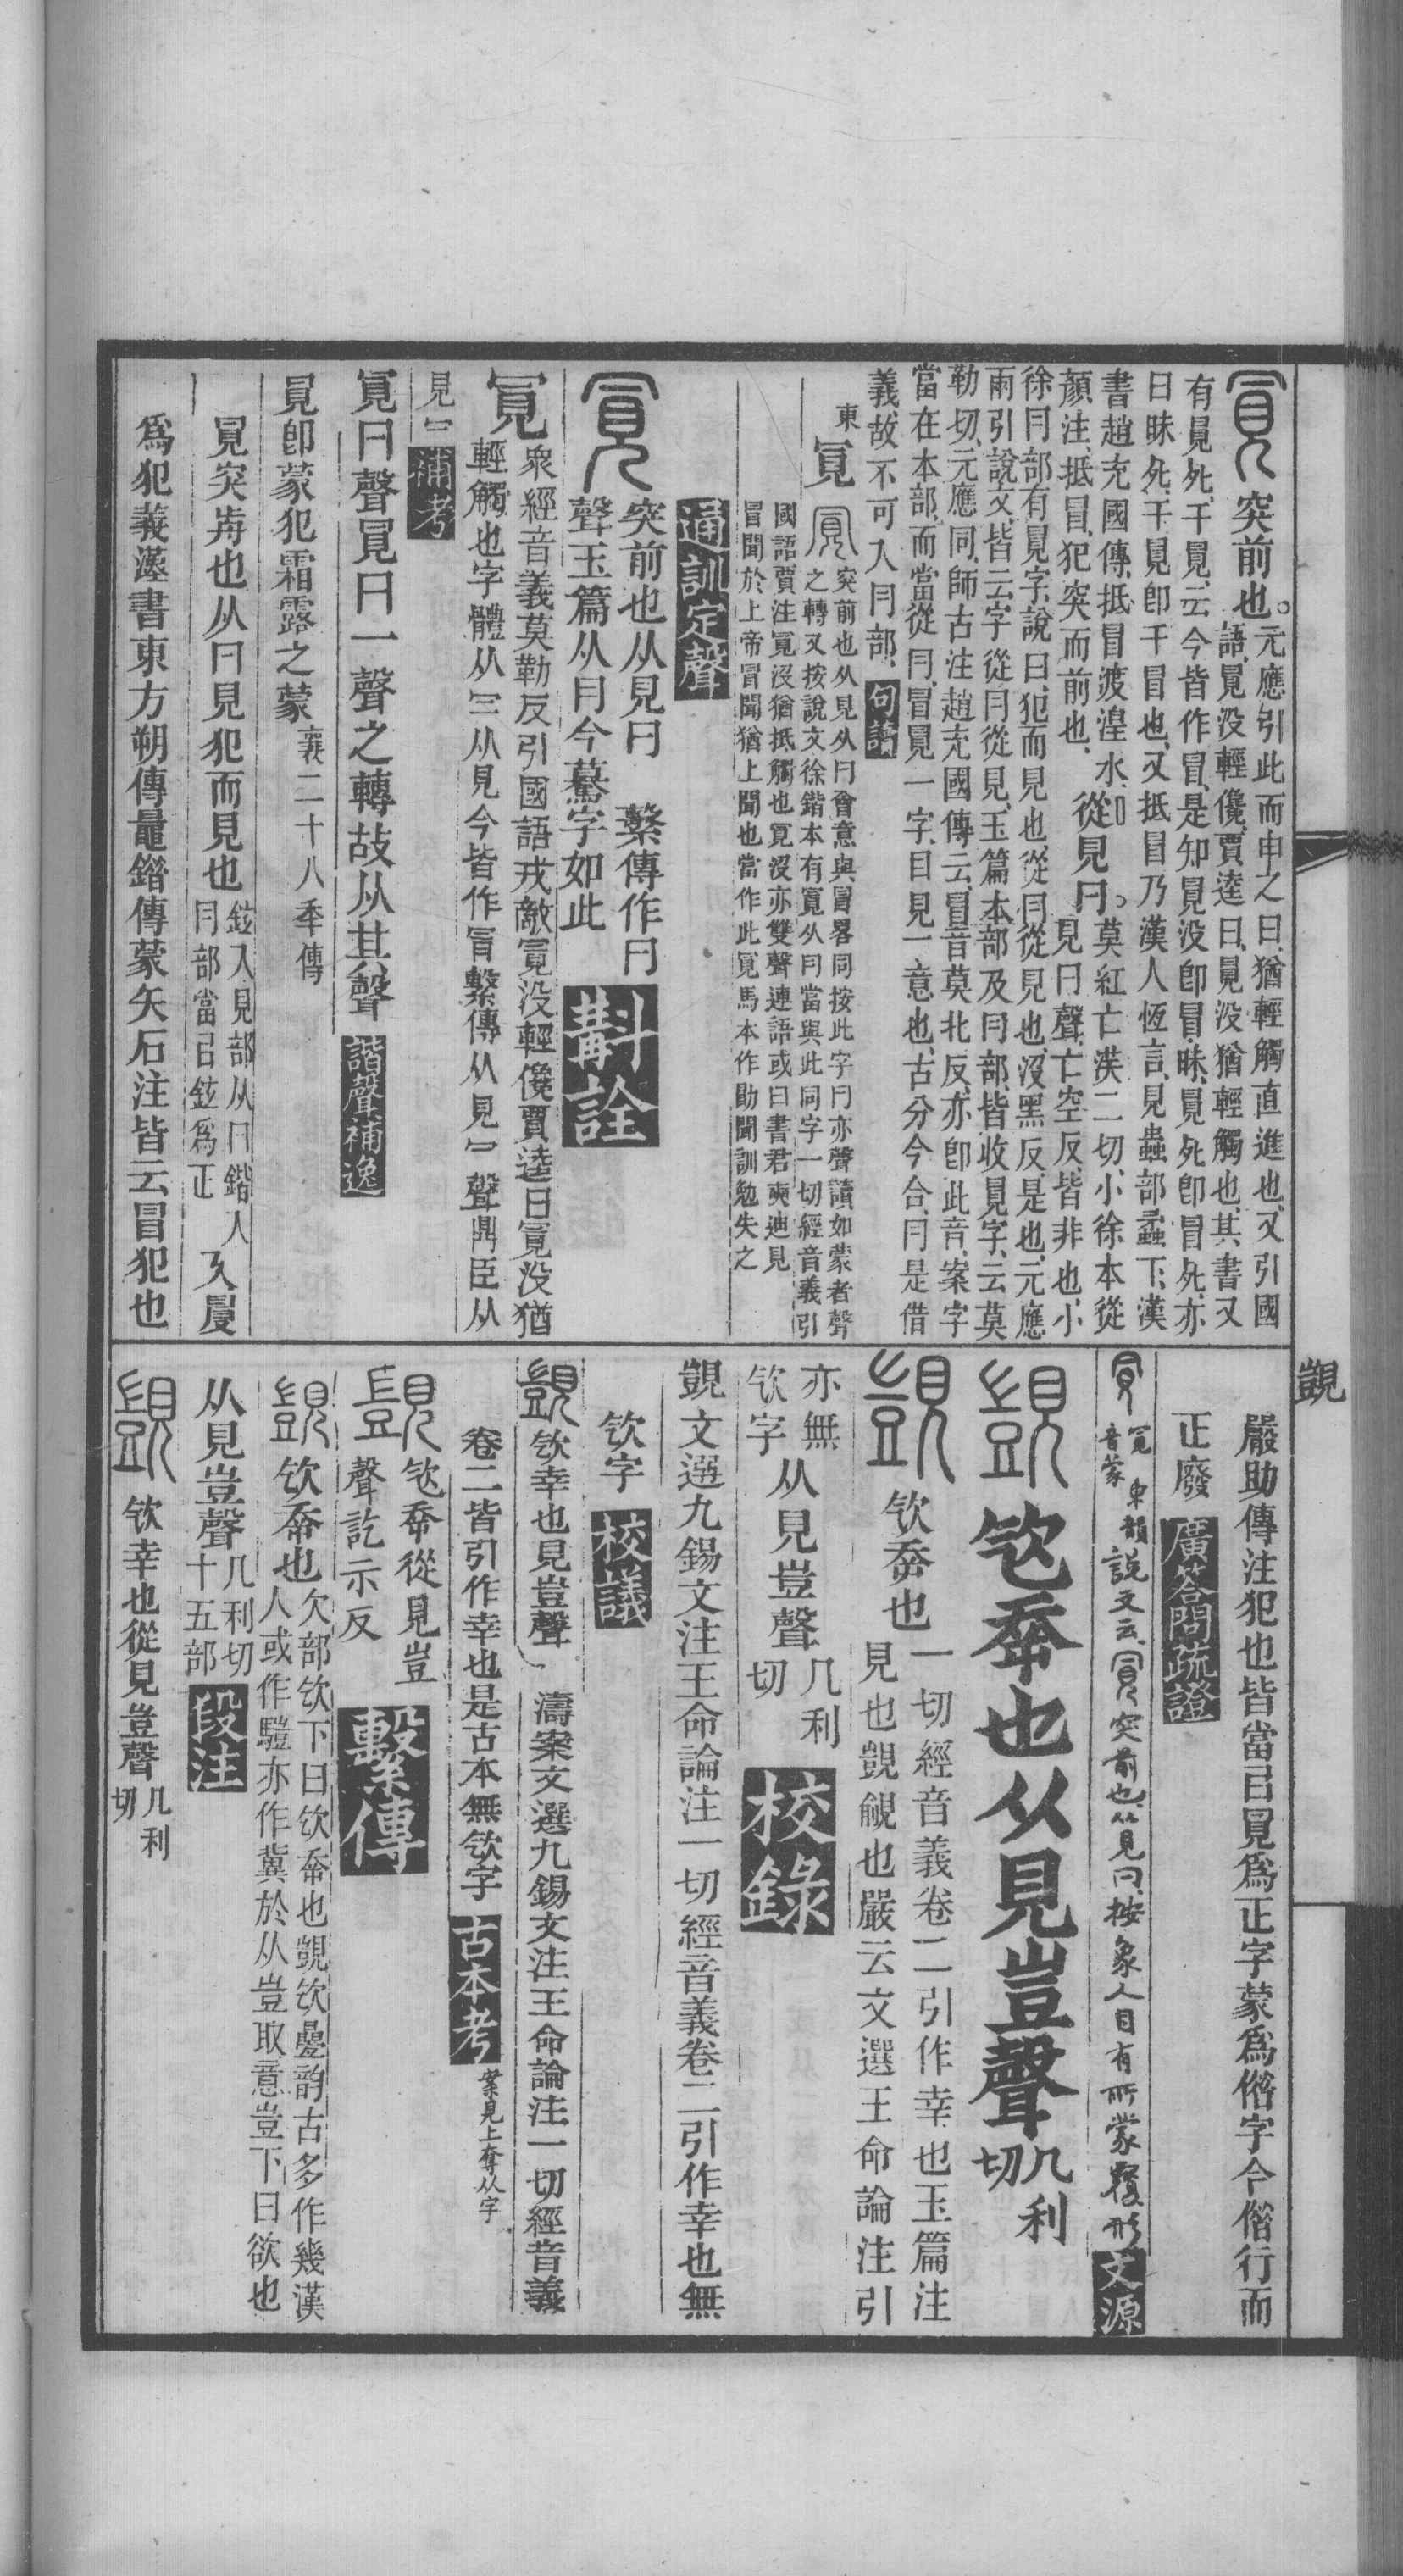 突前也。元應引此而申之曰、猶輕觸直進也、又引國
語、覓没輕儳、賈逵曰、覓没猶輕觸也、其書又
有覓死、干覓、云今皆作冒、是知覓没卽冒昧、覓死卽冒死、亦
曰昧死、干覓卽干冒也、又抵冒乃漢人恆言、見蟲部蟁下、漢
書趙充國傳、抵冒渡湟水、
顏注、抵冒、犯突而前也、從見冃。莫紅亡渶二切、小徐本從
見冃聲、亡空反、皆非也、小
徐冃部有覓字、說曰、犯而見也、從冃從見也、没黑反、是也、元應
兩引說文、皆云字從冃從見、玉篇本部及冃部、皆收覓字、云莫
勒切、元應同、師古注趙充國傳云、冒音莫北反、亦卽此音、案字
當在本部、而當從冃、冒覓一字、目見一意也、古分今合、冃是借
義、故不可入冃部、句讀
東
突前也从見从冃會意與冒畧同按此字冃亦聲讀如蒙者聲
之轉又按說文徐鍇本有覓从冃當與此同字一切經音義引
國語賈注覓没猶抵觸也覓没亦雙聲連語或曰書君奭迪見
冒聞於上帝冒聞猶上聞也當作此覓馬本作勖聞訓勉失之
通訓定聲
突前也从見冃　繫傳作冃
聲玉篇从冃今驀字如此　斠詮
衆經音義莫勒反引國語戎敵覓没輕儳賈逵曰覓没猶
輕觸也字體从从見今皆作冒繫傳从見冖聲鼎臣从
見冖　補考
覓冃聲冃一聲之轉故从其聲　諧聲補逸
覓卽蒙犯霜露之蒙襄二十八年傳
覓突歬也从冃見犯而見也鉉入見部从冃鍇入
冃部當㠯鉉爲正
爲犯義漢書東方朔傳鼂錯傳蒙矢石注皆云冒犯也
覬
嚴助傳注犯也皆當㠯覓爲正字蒙爲借字今借行而
正廢　廣答問疏證
音蒙　東韻　說文云突前也从見冃、按象人目有所蒙覆形　文源
㰟㚔也从見豈聲几利切
㰟㚔也一切經音義卷二引作幸也玉篇注
見也覬覦也嚴云文選王命論注引
亦無
㰟字　从見豈聲几利切　校錄
覬文選九錫文注王命論注一切經音義卷二引作幸也無
㰟字　校議
㰟幸也見豈聲　濤案文選九錫文注王命論注一切經音義
卷二皆引作幸也是古本無㰟字　古本考　案見上奪从字
㰟㚔從見豈
聲訖示反　繫傳
㰟㚔也欠部㰟下曰㰟㚔也覬㰟曡韵古多作幾漢
人或作驥亦作冀於从豈取意豈下曰欲也
从見豈聲几利切十五部　段注
㰟幸也從見豈聲几利切